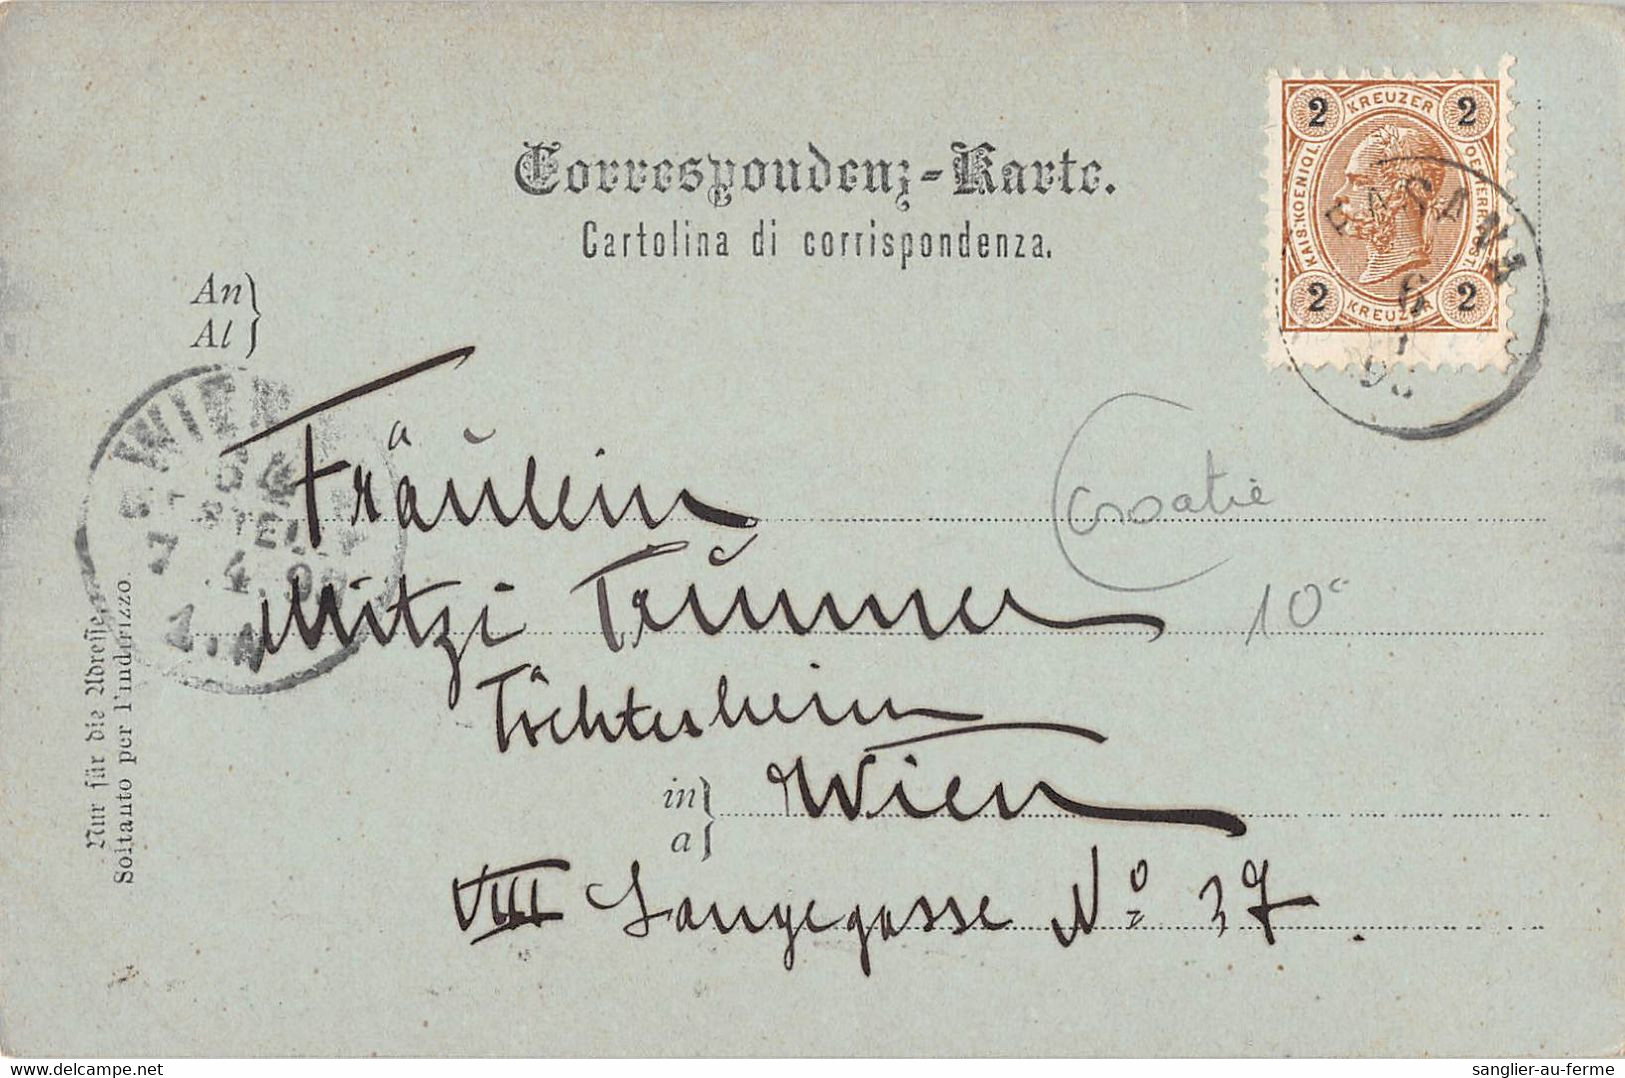 Correspondenz-Karte.
Cartolina di corrispondenza.
2 KREUZER 2
KAIS. KOENIGL. OESTERR. POST.
2 KREUZER 2
6
An
Al
WIEN
BESTELLT
7 4.98
Fräulein
(Croatie
Mitzi Trummer
10
Töchterheim
in
a
Wien
VIII Langegasse No 37.
Nur für die Adresse.
Soltanto per l'indirizzo.
sanglier-au-ferme